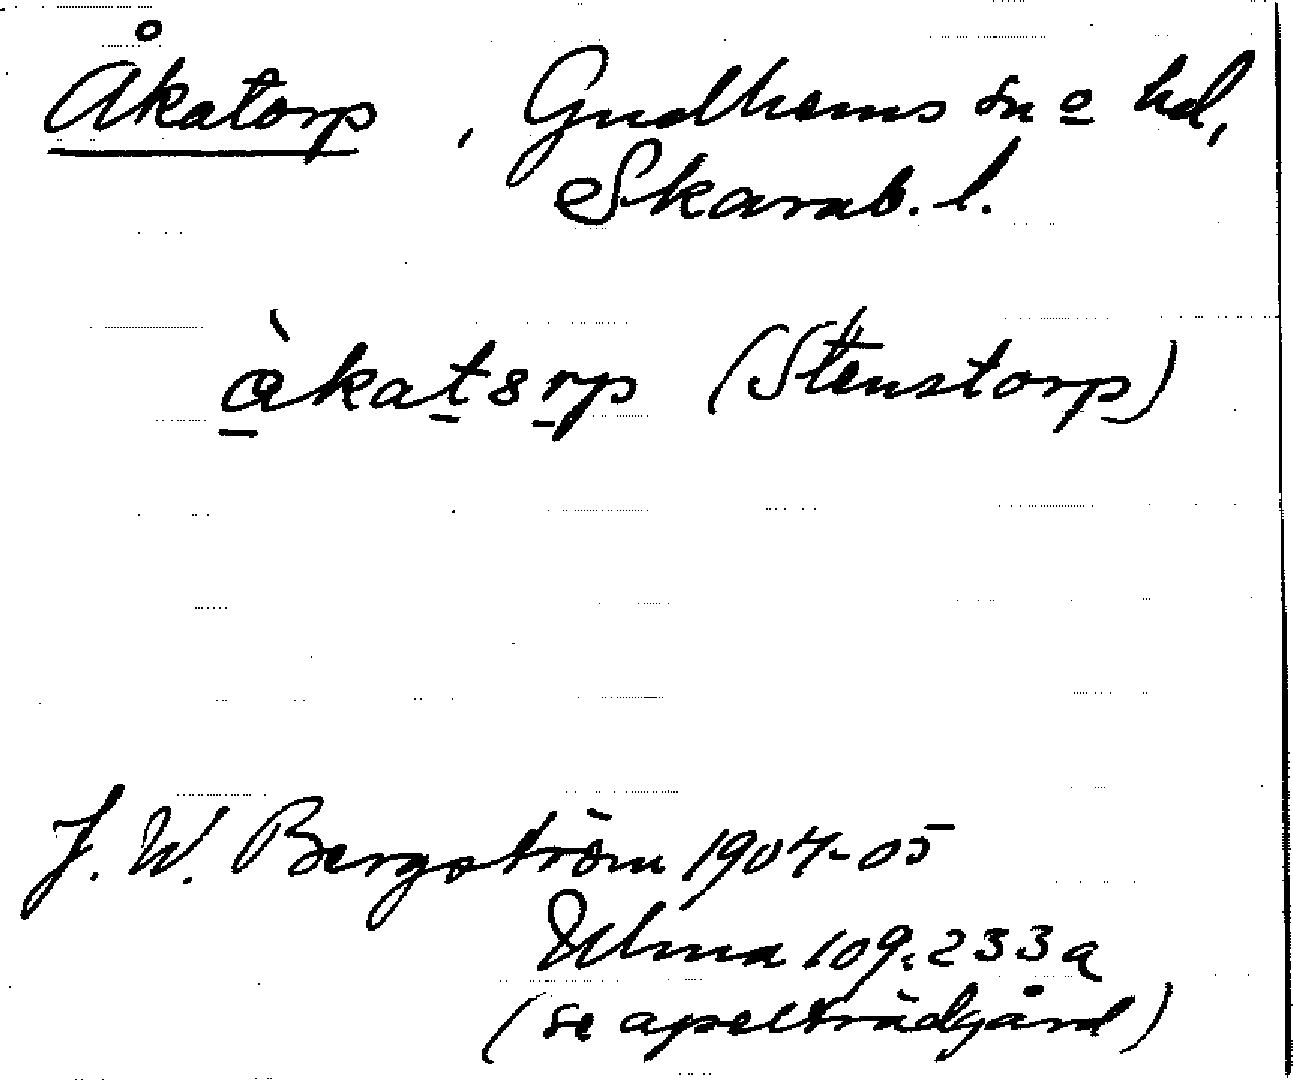 Åkatorp, Gudhems sn o hd,
Skarab. l.
àkat8rp (Stenstorp)
J. W. Bergström 1904-05
Ulma 109:233a
(se apelträdgård)